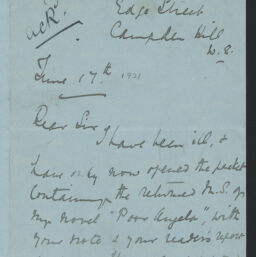 ack^d
Edge Street
Campden Hill
W. 8.
June 17th 1921
Dear Sir,
I have been ill, &
have only now opened the packet
containing the returned M.S. of
my novel "Poor Angela", with
your note & your reader's report